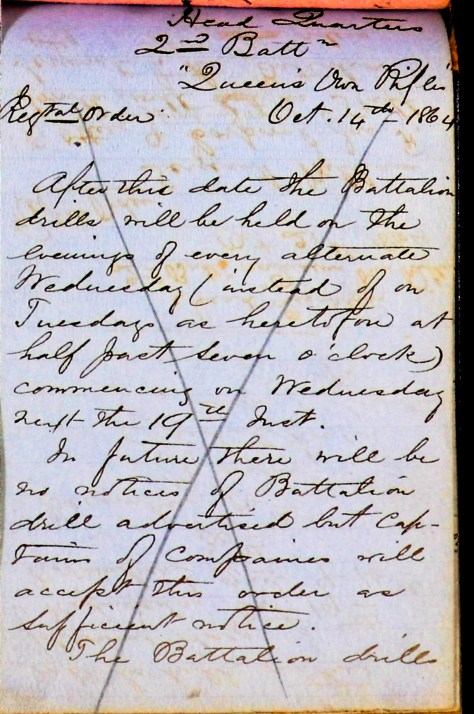 Head Quarters
2nd Battn
"Queen's Own Rifles"
Regtal Order Oct. 14th 1864
After this date the Battalion
drills will be held on the
evenings of every alternate
Wednesday (instead of on
Tuesdays as heretofore at
half past seven o'clock)
commencing on Wednesday
next the 19th Inst.
In future there will be
no notices of Battalion
drill advertised but Cap-
tains of Companies will
accept this order as
sufficient notice.
The Battalion drills